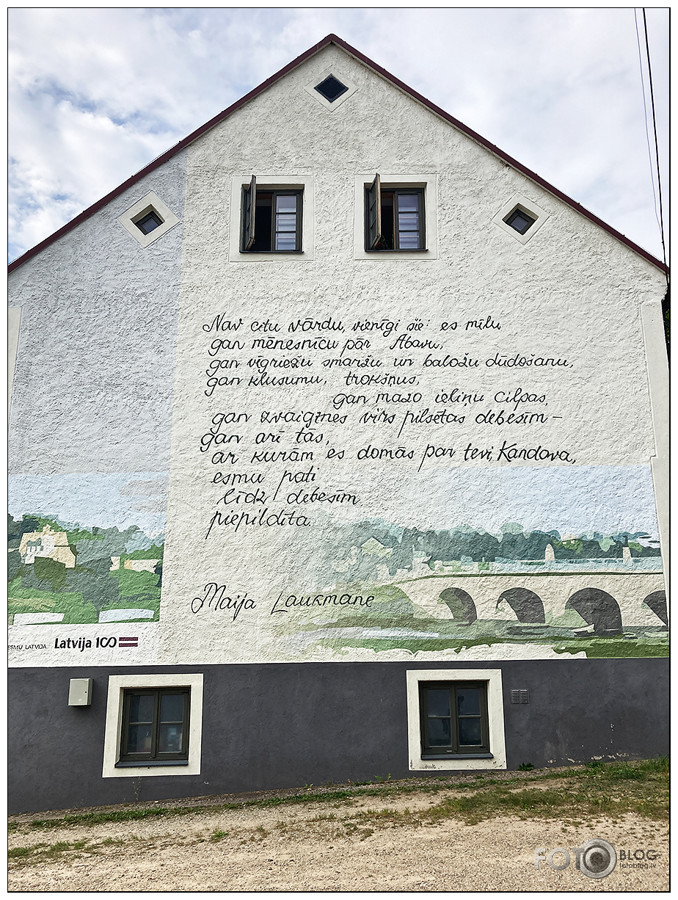 Nav citu vārdu, vienīgi šie: es mīlu
gan mēnesnīcu pār Abavu,
gan vīgriežu smaržu un baložu dūdošanu,
gan klusumu, trokšņus,
gan mazo ieliņu cilpas,
gan zvaigznes virs pilsētas debesīm –
gan arī tās,
ar kurām es domās par tevi, Kandava,
esmu pati
līdz debesīm
piepildīta.
Maija Laukmane
ESMU LATVIJA Latvija 100
FOTO BLOG
fotoblog.lv